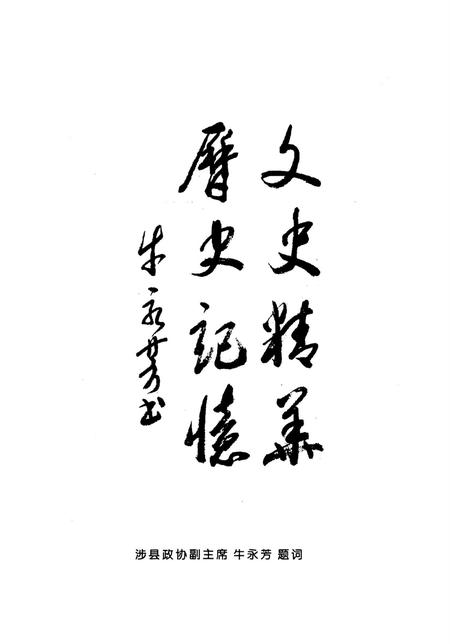 文史精華
曆史記憶
牛永芳书
涉县政协副主席 牛永芳 题词